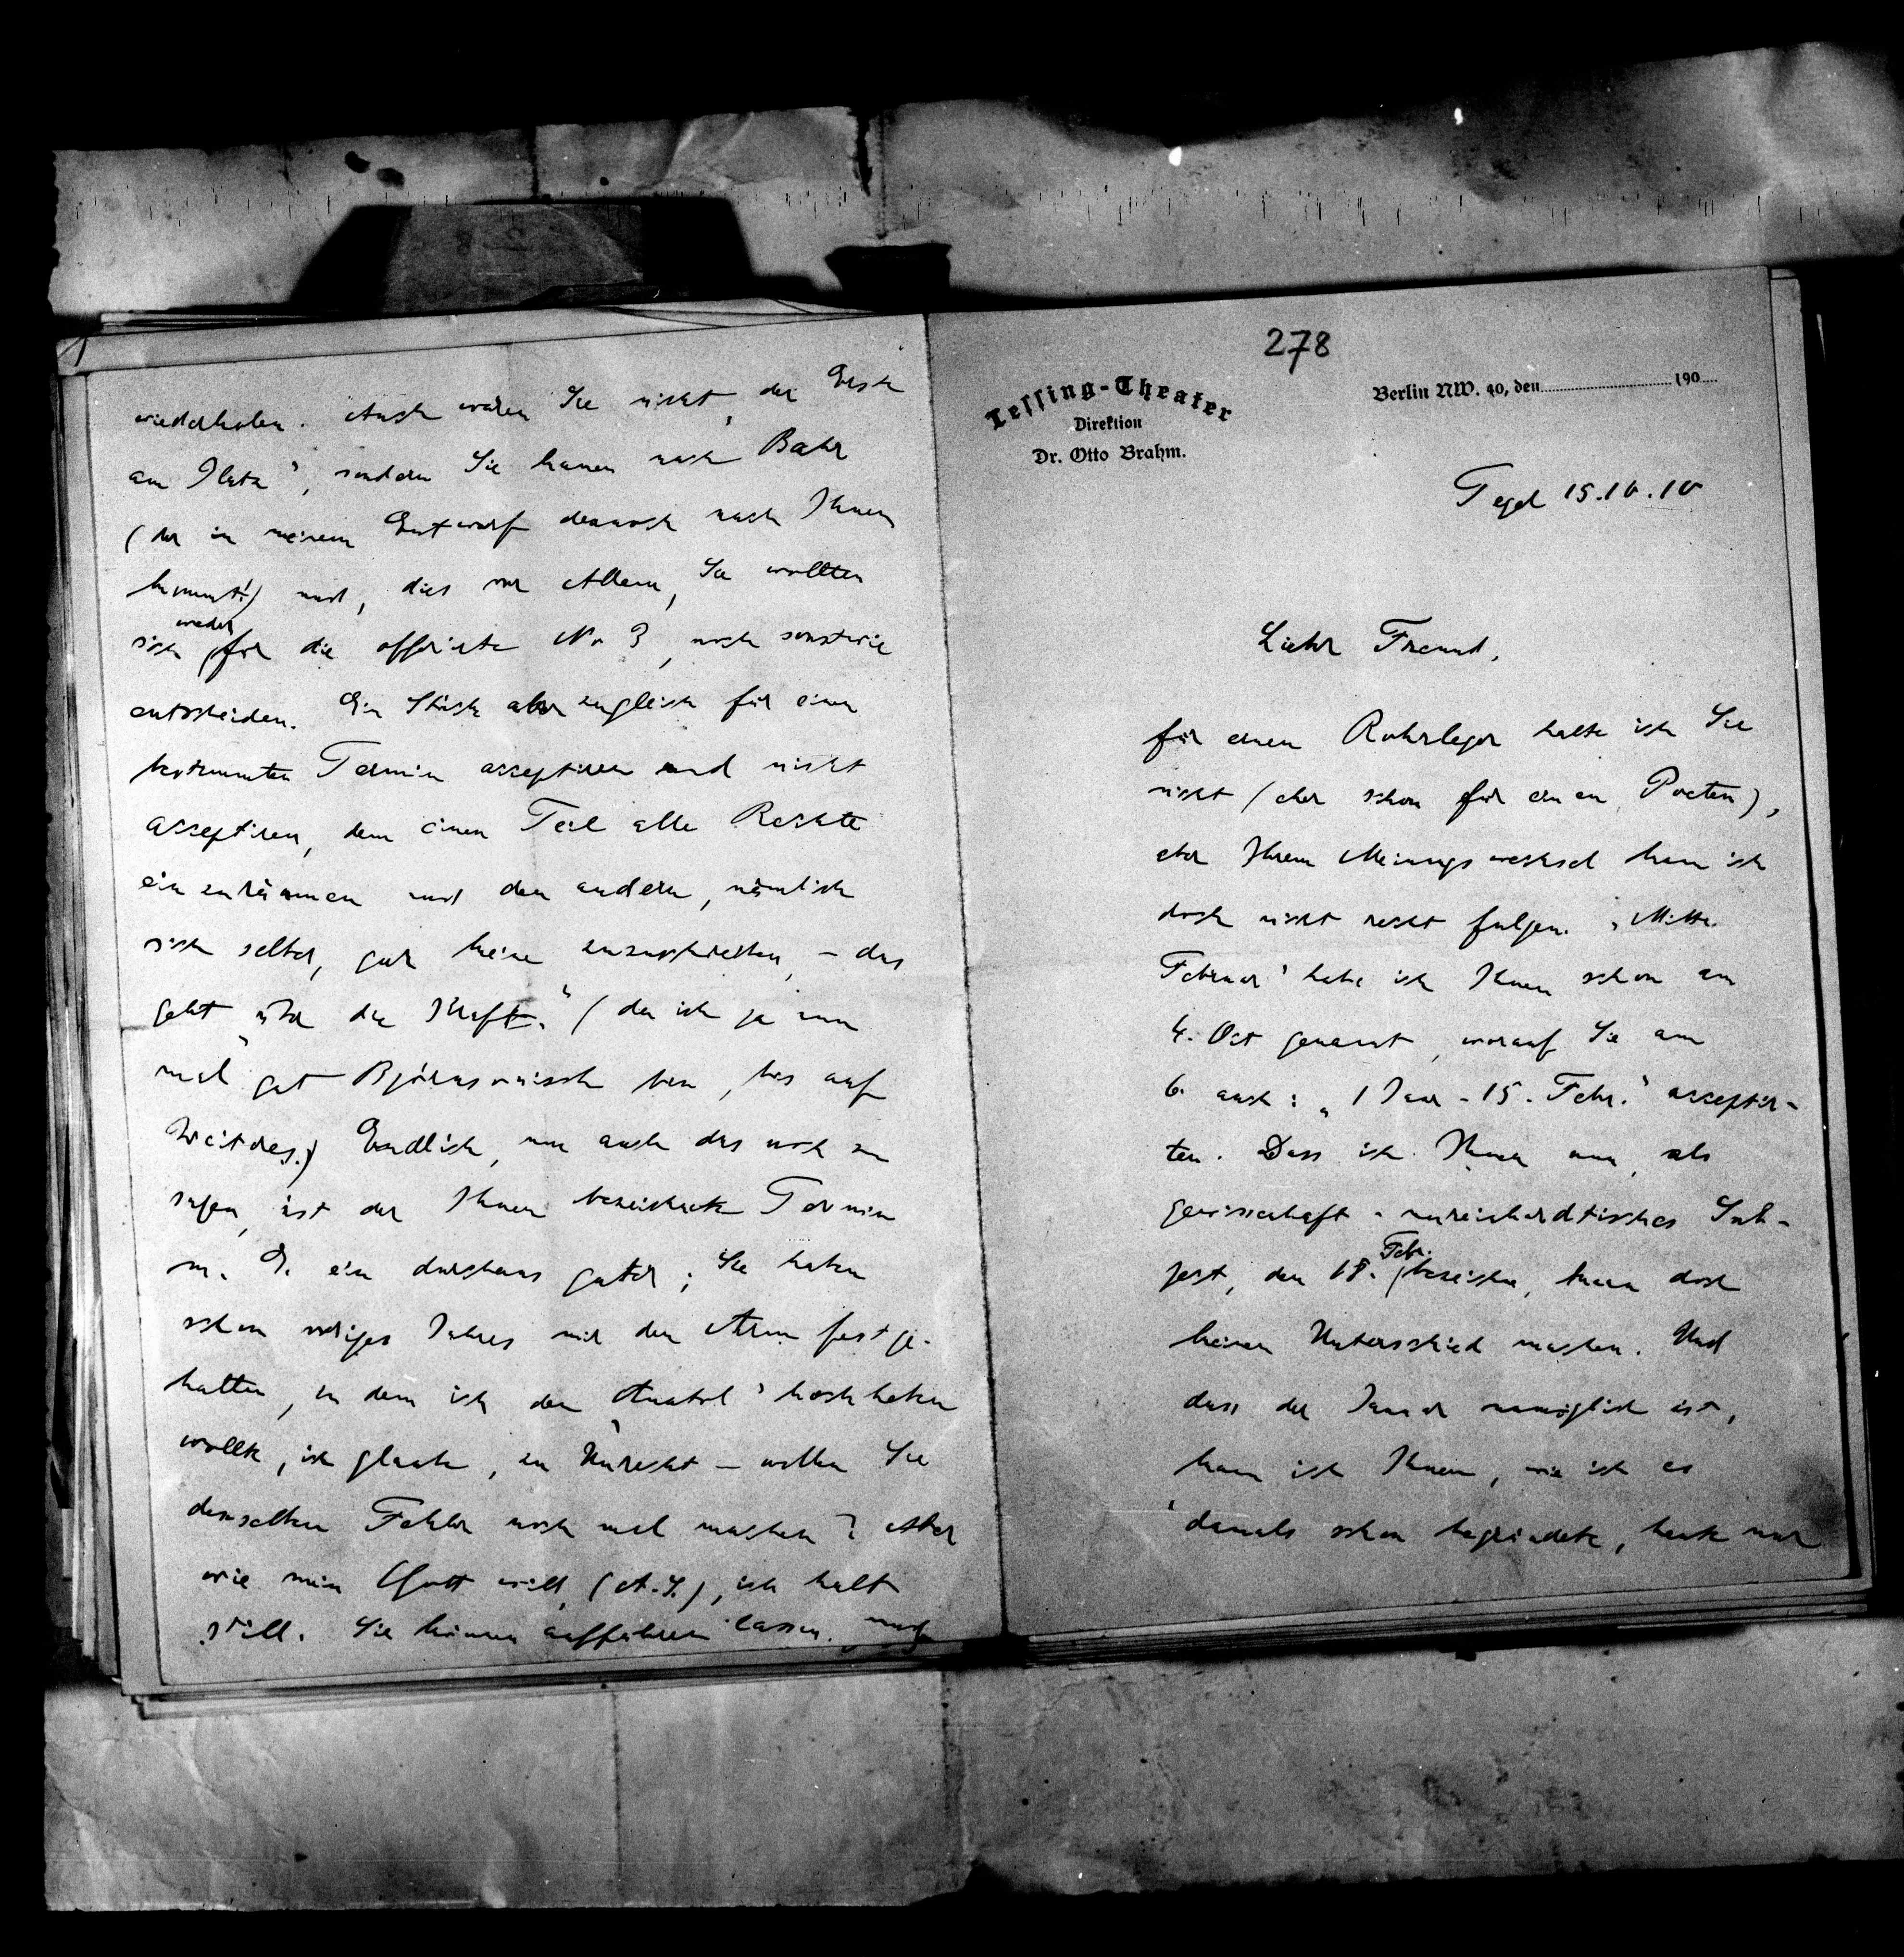 278
Lessing-Theater
Direktion
Dr. Otto Brahm.
Berlin NW. 40, den 190
Tegel 15.10.10
Lieber Freund,
für einen Rohrleger halte ich Sie
nicht (eher schon für einen Poeten),
aber Ihrem Meinungswechsel kann ich
doch nicht recht folgen. „Mitte
Februar“ habe ich Ihnen schon am
4. Oct genannt, worauf Sie am
6. auch: „1 Jan - 15. Febr.“ acceptir-
ten. Dass ich Ihnen nun, als
gewissenhaft-unreichardtisches Sub-
jekt, den 18. Febr. bezeichne, kann doch
keinen Unterschied machen. Und
dass der Januar unmöglich ist,
kann ich Ihnen, wie ich es
damals schon begründete, heute nur
wiederholen. Auch waren Sie nicht „der Erste
am Platz“, sondern Sie kamen nach Bahr
(der in meinem Entwurf dennoch nach Ihnen
kommt!) und, dies vor Allem, Sie wollten
sich weder für die offerirte No 3, noch sonstwie
entscheiden. Ein Stück aber zugleich für einen
bestimmten Termin acceptiren und nicht
acceptiren, dem einen Teil alle Rechte
einzuräumen und dem andern, nämlich
sich selber, gar keine zuzuschreiben, – das
geht „über die Kraft.“ (da ich ja nun
mal gut Björnsonisch bin, bis auf
Weitres.) Endlich, um auch das noch zu
sagen, ist der Ihnen bezeichnete Termin
m. E. ein durchaus guter; Sie haben
schon voriges Jahres mir den Arm festge-
halten, in dem ich den „Anatol“ hochheben
wollte, ich glaube, zu Unrecht – wollen Sie
denselben Fehler noch mal machen? Aber
wie mein Gott will, (A.S.), ich halt
still. Sie können aufführen lassen, und